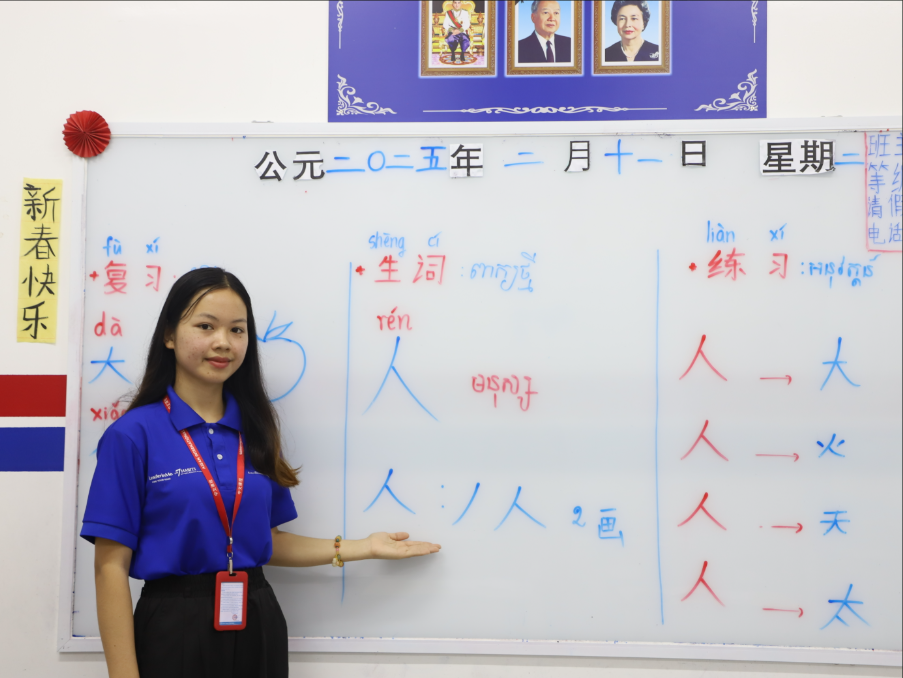 公元二〇二五年 二 月十一日 星期二
班主
等级
请假
电话
新春快乐
fù xí
复习:
dà
大
shēng cí
生词:ពាក្យថ្មី
rén
人 មនុស្ស
人:丿人 2画
liàn xí
练习:អនុវត្តន៍
人 → 大
人 → 火
人 → 天
人 → 太